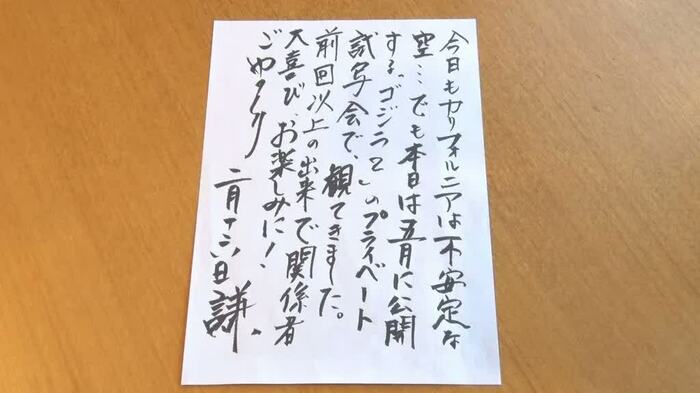 今日もカリフォルニアは不安定な
空…でも本日は五月に公開
する「ゴジラ2」のプライベート
試写会で、観てきました。
前回以上の出来で関係者
大喜び、お楽しみに!
ごゆるり
二月十六日 謙。